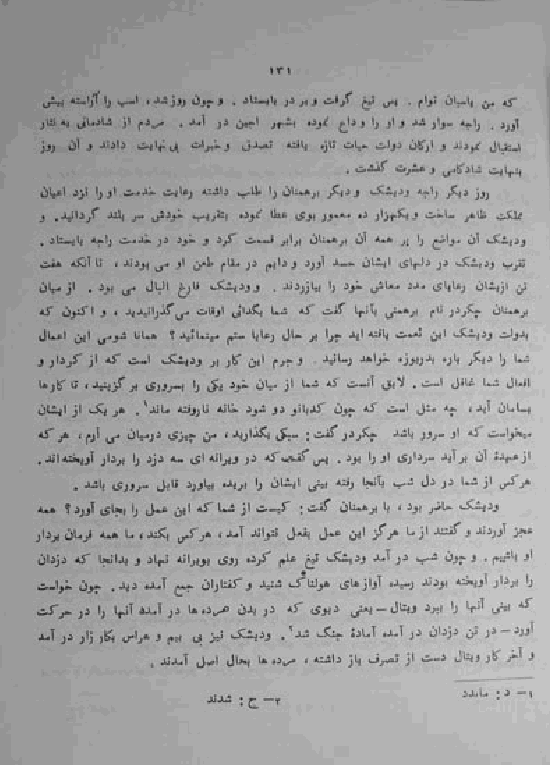 ۱۳۱
که من پاسبان توام . پس تیغ گرفت و بر در بایستاد . و چون روز شد، اسب را آراسته پیش
آورد . راجه سوار شد و او را وداع نموده بشهر اجین در آمد . مردم از شادمانی به نثار
استقبال نمودند و ارکان دولت حیات تازه یافته تصدق و خیرات بی نهایت دادند و آن روز
بنهایت شادکامی و عشرت گذشت .
روز دیگر راجه ودیشک و دیگر برهمنان را طلب داشته رعایت خدمت او را نزد اعیان
مملکت ظاهر ساخت و یکهزار ده معمور بوی عطا نموده بتقریب خودش سر بلند گردانید . و
ودیشک آن مواضع را بر همه آن برهمنان برابر قسمت کرد و خود در خدمت راجه بایستاد .
تقرب ودیشک در دلهای ایشان حسد آورد و دایم در مقام طعن او می بودند، تا آنکه هفت
تن ازیشان رعایای مدد معاش خود را بیازردند . و ودیشک فارغ البال می بود . از میان
برهمنان چکردر نام برهمنی بآنها گفت که شما بگدائی اوقات می گذرانیدید ، و اکنون که
بدولت ودیشک این نعمت یافته اید چرا بر حال رعایا ستم مینمائید ؟ همانا شومی این اعمال
شما را دیگر باره بدریوزه خواهد رسانید . و جرم این کار بر ودیشک است که از کردار و
افعال شما غافل است . لایق آنست که شما از میان خود یکی را بسروری برگزینید ، تا کارها
بسامان آید ، چه مثل است که چون کدبانو دو شود خانه ناروفته ماند¹. هر یک از ایشان
میخواست که او سرور باشد چکردر گفت : سبکی بگذارید ، من چیزی درمیان می آرم ، هر که
از عهدهٔ آن برآید سرداری او را بود . پس گفت که در ویرانه ای سه دزد را بردار آویخته‌اند.
هرکس از شما دو دل شب بآنجا رفته بینی ایشان را بریده بیاورد قابل سروری باشد .
ودیشک حاضر بود ، با برهمنان گفت : کیست از شما که این عمل را بجای آورد ؟ همه
عجز آوردند و گفتند از ما هرگز این عمل بفعل نتواند آمد ، هرکس بکند ، ما همه فرمان بردار
او باشیم . و چون شب در آمد ودیشک تیغ علم کرده روی بویرانه نهاد و بدانجا که دزدان
را بردار آویخته بودند رسیده آوازهای هولناک شنید و کفتاران جمع آمده دید . چون خواست
که بینی آنها را ببرد ویتال – یعنی دیوی که در بدن مرده‌ها در آمده آنها را در حرکت
آورد – در تن دزدان در آمده آمادهٔ جنگ شد². ودیشک نیز بی بیم و هراس بکارزار در آمد
و آخر کار ویتال دست از تصرف باز داشته ، مرده‌ها بحال اصل آمدند .
۱ – د : مانند
۲ – ح : شدند